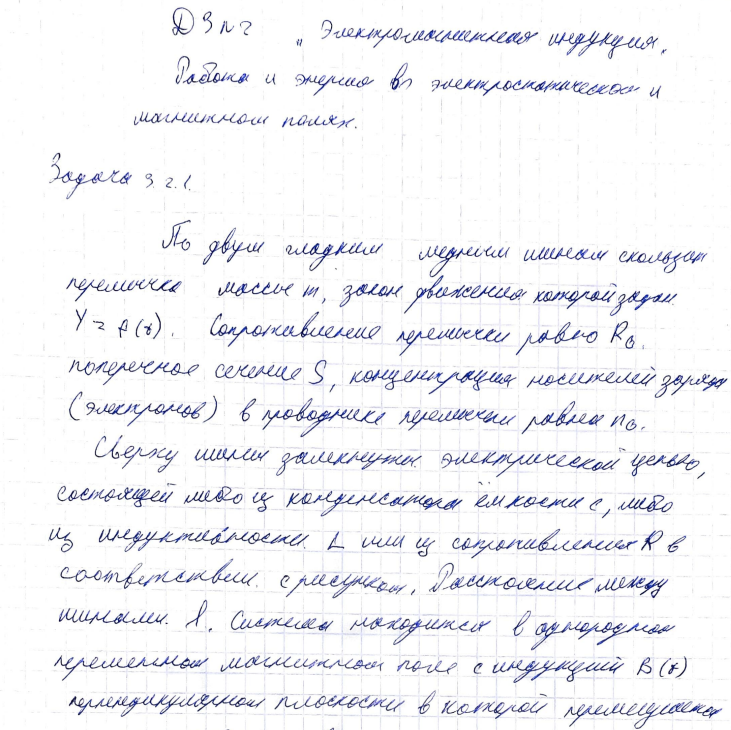 ДЗ №2 „Электромагнитная индукция.
Работа и энергия в электростатическом и
магнитном полях.
Задача 3.2.1.
По двум гладким медным шинам скользит
перемычка массы m, закон движения которой задан
Y = f(t). Сопротивление перемычки равно R₀.
поперечное сечение S, концентрация носителей заряда
(электронов) в проводнике перемычки равна n₀.
Сверху шины замкнуты электрической цепью,
состоящей либо из конденсатора ёмкости C, либо
из индуктивности L или из сопротивления R в
соответствии с рисунком. Расстояние между
шинами l. Система находится в однородном
переменном магнитном поле с индукцией B(t)
перпендикулярном плоскости в которой перемещается